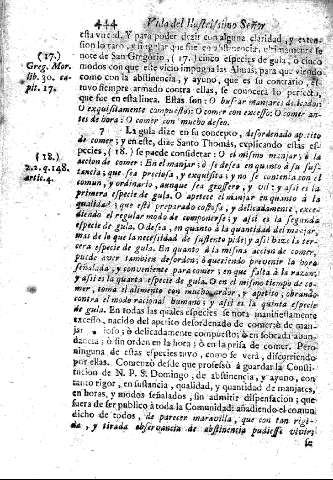 444 Vida del Ilustrissimo Señor
esta virtud. Y para poder dezir con alguna claridad, y exten-
sion lo raro, y singular que fue en abstinencia,
(17.)
Greg. Mor.
lib. 30. ca-
pit. 17.
note de San Gregorio, (17.) cinco especies de gula, o cinco
modos con que este vicio impugna las Almas, para que viendo
como con la abstinencia, y ayuno, que es su contrario, es-
tuvo siempre armado contra ellas, se conocera lo perfecto,
que fue en esta linea. Estas son: O buscar manjares delicados:
O exquisitamente compuestos: O comer con excesso: O comer an-
tes de hora: O comer con mucho deseo.
7 La gula dize en su concepto, desordenado apetito
de comer; y en este, dize Santo Thomàs, explicando estas es-
(18.)
2.2. q. 148.
artic. 4.
pecies, (18.) se puede considerar: O el mismo manjar; ò la
accion de comer: En el manjar; ò se desea en quanto à su sus-
tancia; que sea preciosa, y exquisita; y no se contenta con el
comun, y ordinario, aunque sea grossero, y vil: y assi es la
primera especie de gula. O apetece el manjar en quanto à la
qualidad; que estè preparado costosa, y delicadamente, exce-
diendo el regular modo de componerse; y assi es la segunda
especie de gula. O desea, en quanto à la quantidad del manjar,
mas de lo que la necessidad de sustento pide; y assi haze la ter-
cera especie de gula. En quanto à la misma accion de comer,
puede aver tambien desorden; ò queriendo prevenir la hora
señalada, y conveniente para comer; en que falta à la razon;
y assi es la quarta especie de gula. O en el mismo tiempo de co-
mer, toma el alimento con mucho ardor, y apetito, obrando
contra el modo racional humano; y assi es la quinta especie
de gula. En todas las quales especies se nota manifiestamente
excesso, nacido del apetito desordenado de comer: ò de man-
jar ò delicadamente compuestos; ò en sobrada abun-
dancia; ò sin orden en la hora; ò en la prisa de comer. Pero
ninguna de estas especies tuvo, como se verà, discurriendo
por ellas. Començò desde que professò à guardar la Consti-
tucion de N. P. S. Domingo, de abstinencia, y ayuno, con
tanto rigor, en sustancia, qualidad, y quantidad de manjares,
en horas, y modos señalados, sin admitir dispensacion; que
fuera de ser publico à toda la Comunidad; añadiendo el comun
dicho de todos, de parecer maravilla, que con tan rigi-
da, y tirada observancia de abstinencia pudiesse vivir:
se